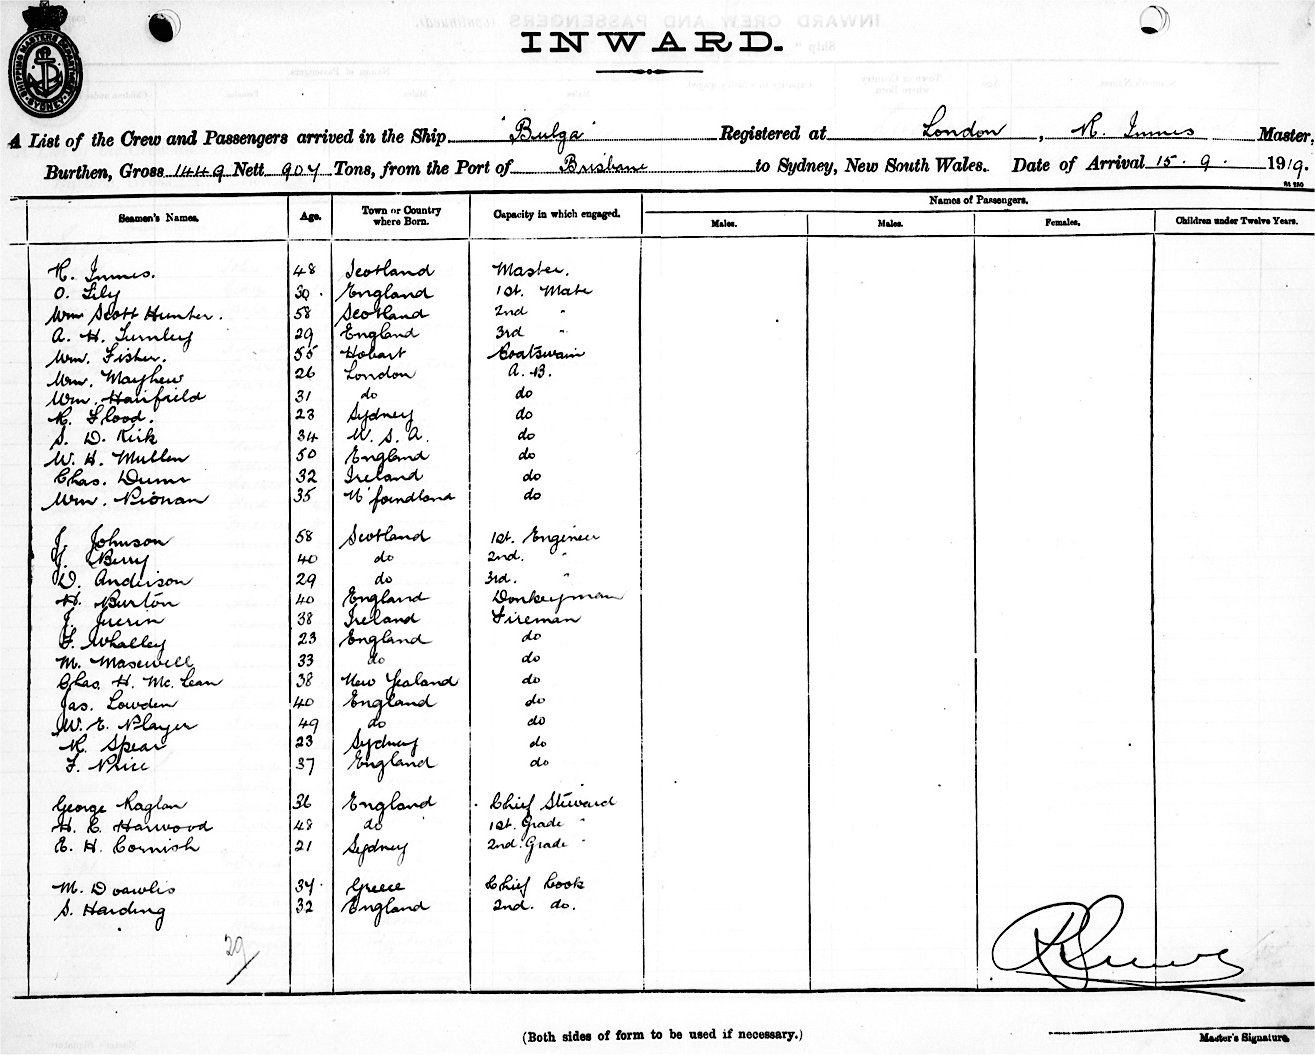 INWARD.
SHIPPING MASTERS DEPARTMENT SYDNEY
A List of the Crew and Passengers arrived in the Ship "Bulga" Registered at London, R. Innes Master,
Burthen, Gross 1449 Nett 907 Tons, from the Port of Brisbane to Sydney, New South Wales. Date of Arrival 15. 9. 1919.
Seamen's Names. Age. Town or Country where Born. Capacity in which engaged. Names of Passengers.
Males. Males. Females. Children under Twelve Years.
R. Innes. 48 Scotland Master.
O. Lily 30 England 1st. Mate
Wm Scott Hunter. 58 Scotland 2nd "
A. H. Turnley 29 England 3rd "
Wm. Fisher. 55 Hobart Boatswain
Wm. Mayhew 26 London A.B.
Wm. Hairfield 31 do do
R. Flood. 23 Sydney do
S. D. Kirk 34 U. S. A. do
W. H. Mullen 50 England do
Chas. Dunn 32 Ireland do
Wm. 35 N'foundland do
J. Johnson 58 Scotland 1st. Engineer
J. Berry 40 do 2nd. "
D. Anderson 29 do 3rd. "
H. Burton 40 England Donkeyman
J. 38 Ireland Fireman
F. Whalley 23 England do
M. Maxwell 33 do do
Chas. H. Mc. Lean 38 New Zealand do
Jas. Lowden 40 England do
W. E. Player 49 do do
R. Spear 23 Sydney do
F. Price 37 England do
George Raglan 36 England Chief Steward
H. C. Harwood 48 do 1st. Grade "
E. H. Cornish 21 Sydney 2nd. Grade "
M. 34 Greece Chief Cook
S. Harding 32 England 2nd. do.
29
R Innes
(Both sides of form to be used if necessary.)
Master's Signature